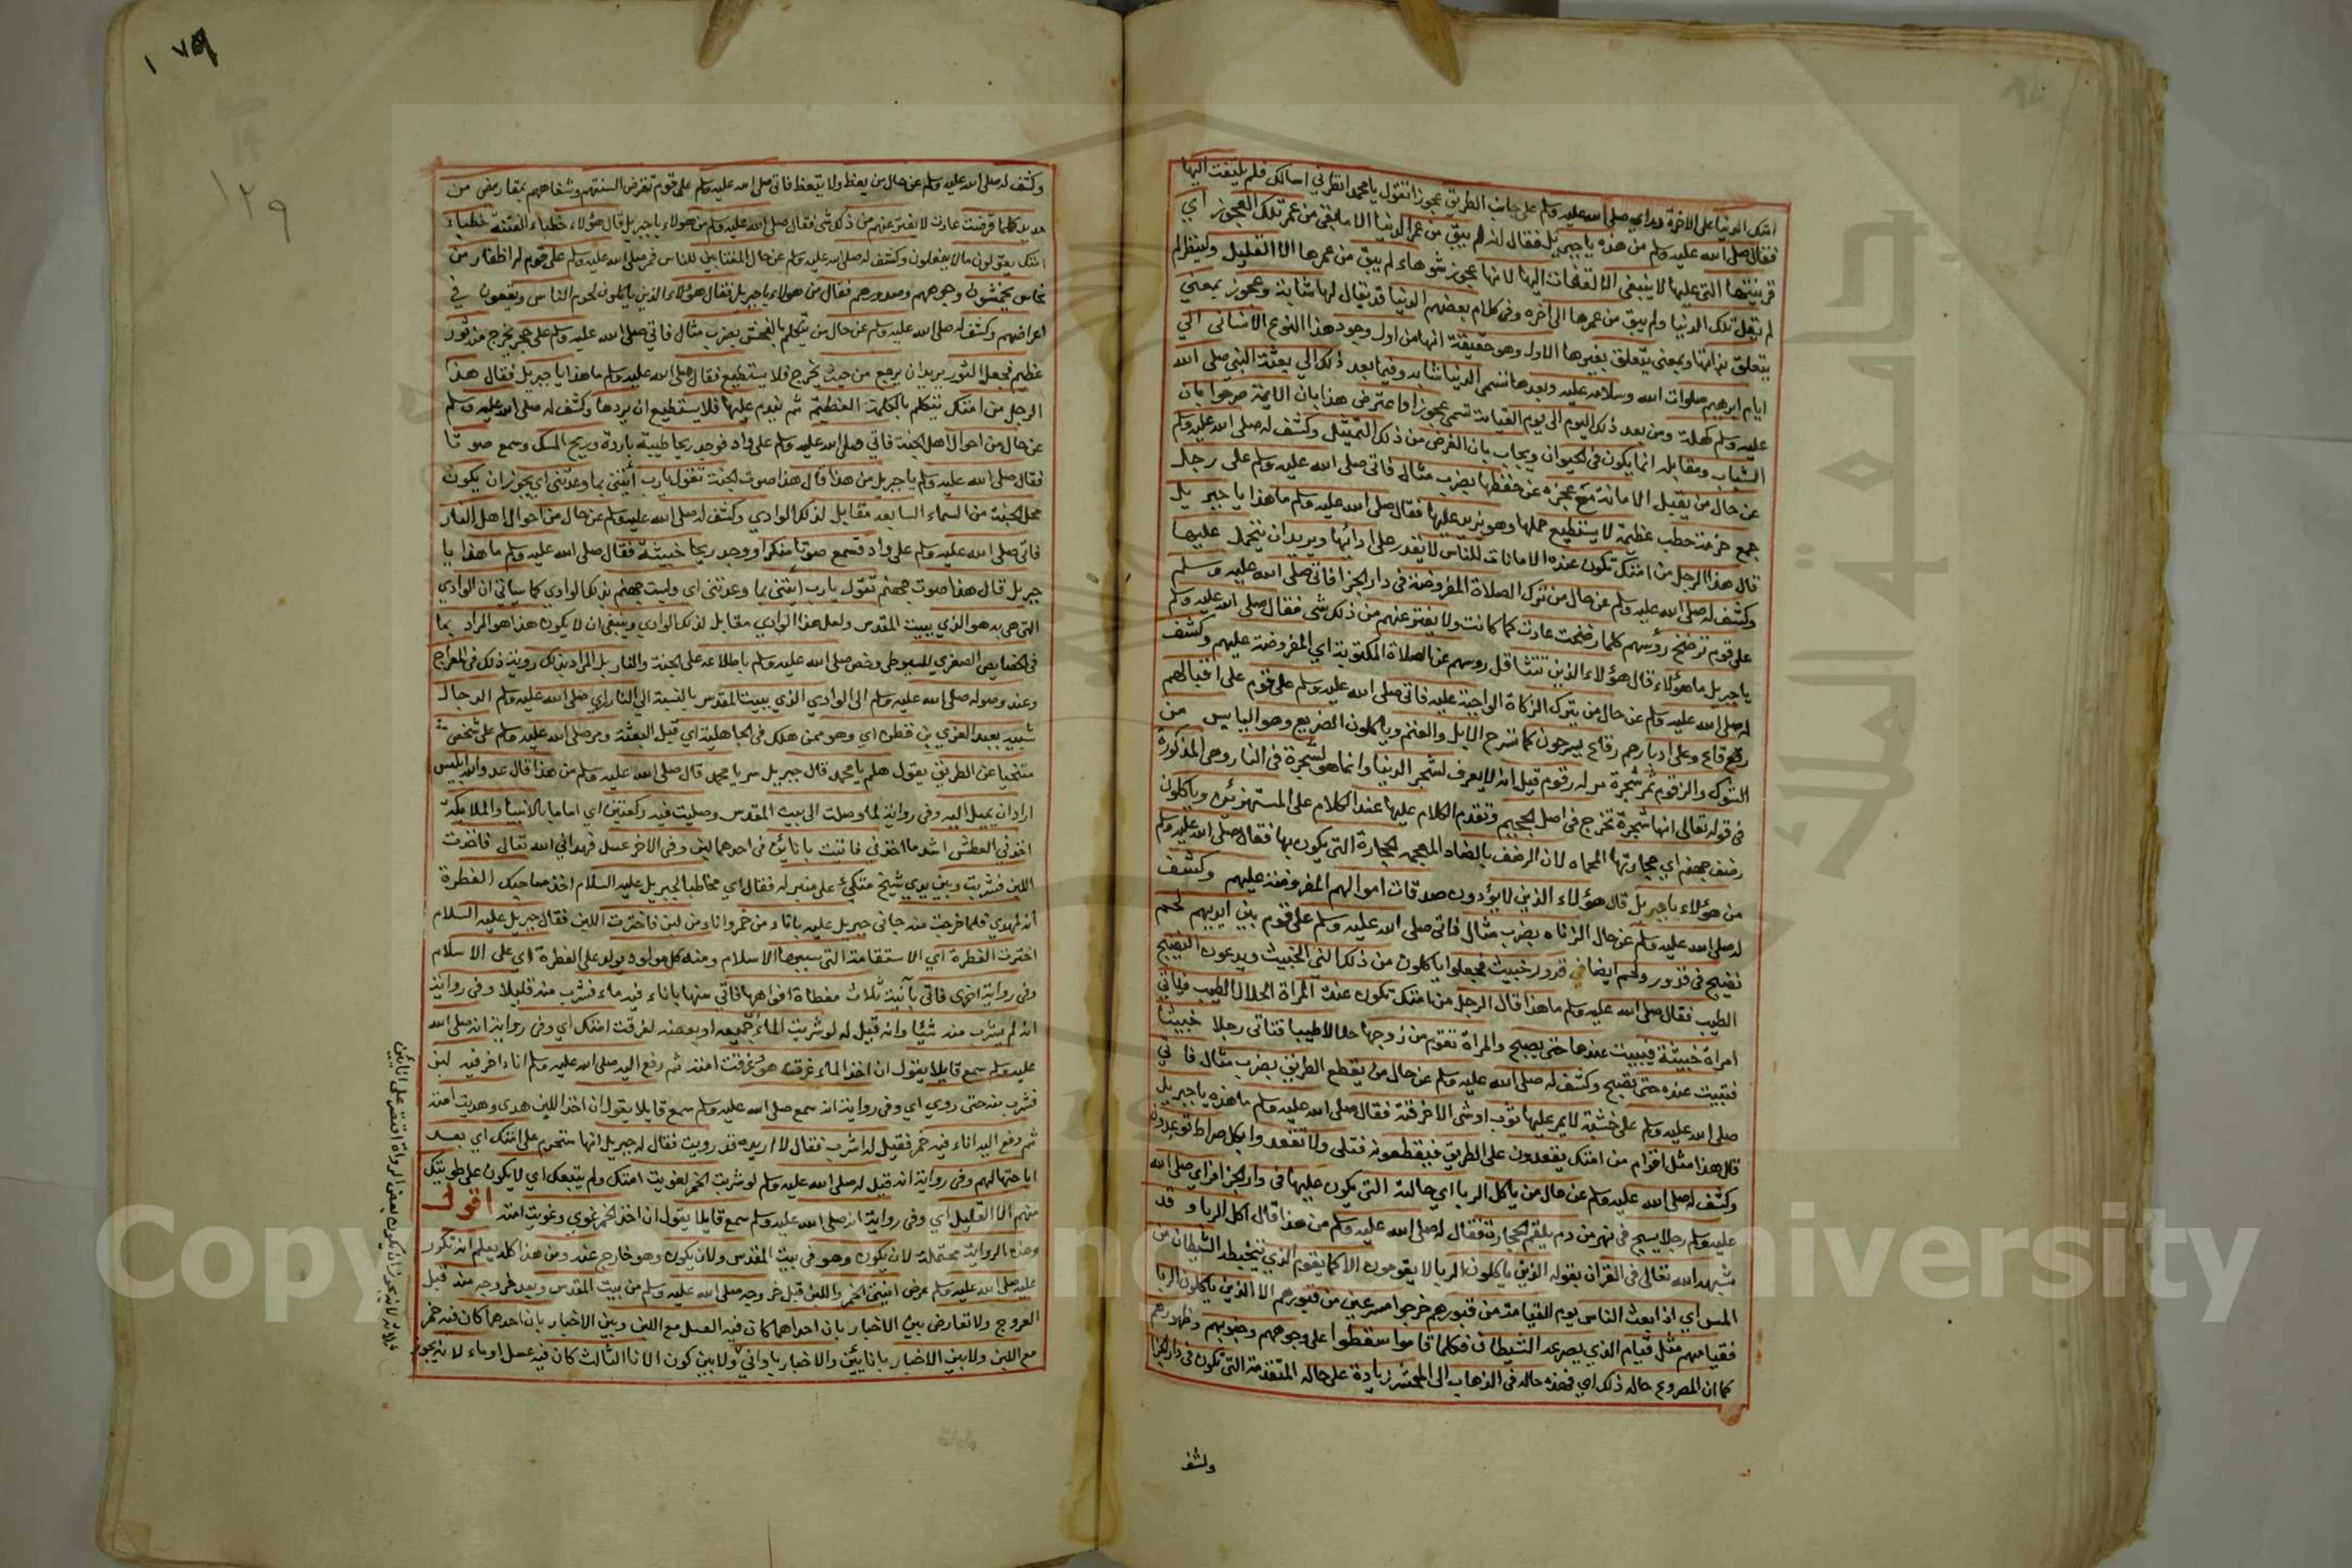 امتك الدنيا على الاخرة وراي صلى الله عليه وسلم على جانب الطريق عجوزا تقول يا محمد انظرني اسالك فلم يلتفت اليها
فقال صلى الله عليه وسلم من هذه يا جبريل فقال انه لم يبق من عمر الدنيا الا ما بقي من عمر تلك العجوز اي
قرينتها التي عليها لا ينبغي الالتفات اليها لانها عجوز شوهاء لم يبق من عمرها الا القليل ولينظر لم
لم تقل تلك الدنيا ولم يبق من عمرها الى اخره وفي كلام بعضهم الدنيا قد يقال لها شابة وعجوز بمعنى
يتعلق بذاتها وبمعنى يتعلق بغيرها الاول وهو حقيقة انها من اول وجود هذا النوع الانساني الى
ايام ابرهيم صلوات الله وسلامه عليه وبعدها تسمى الدنيا شابة وفيما بعد ذلك الى بعثة النبي صلى الله
عليه وسلم كهلة ومن بعد ذلك اليوم الى يوم القيامة تسمى عجوزا واعترض هذا بان الايمة صرحوا بان
الشباب ومقابله انما يكون في الحيوان ويجاب بان الغرض من ذلك التمثيل وكشف له صلى الله عليه وسلم
عن حال من يقبل الامانة مع عجزه عن حفظها بضرب مثال فاتى صلى الله عليه وسلم على رجل
جمع حزمة حطب عظيمة لا يستطيع حملها وهو يزيد عليها فقال صلى الله عليه وسلم ما هذا يا جبريل
قال هذا الرجل من امتك تكون عنده الامانات للناس لا يقدر على ادائها ويريد ان يتحمل عليها
وكشف له صلى الله عليه وسلم عن حال من ترك الصلاة المفروضة في دار الجزا فاتى صلى الله عليه وسلم
على قوم ترضخ رؤسهم كلما رضخت عادت كما كانت ولا يفتر عنهم من ذلك شى فقال صلى الله عليه وسلم
يا جبريل ما هؤلاء قال هؤلاء الذين تتثاقل روسهم عن الصلاة المكتوبة اي المفروضة عليهم وكشف
له صلى الله عليه وسلم عن حال من يترك الزكاة الواجبة عليه فاتى صلى الله عليه وسلم على قوم على اقبالهم
رقاع وعلى ادبارهم رقاع يسرحون كما تسرح الابل والغنم وياكلون الضريع وهو اليابس من
الشوك والزقوم ثمر شجرة مر له زقوم قيل انه لا يعرف لشجر الدنيا وانما هو لشجرة في النار وهي المذكورة
في قوله تعالى انها شجرة تخرج في اصل الجحيم وتقدم الكلام عليها عند الكلام على المستهزئين وياكلون
رضف جهنم اي حجارتها المحماه لان الرضف بالضاد المعجمه الحجارة التي يكوى بها فقال صلى الله عليه وسلم
من هؤلاء يا جبريل قال هؤلاء الذين لا يؤدون صدقات اموالهم المفروضة عليهم وكشف
له صلى الله عليه وسلم عن حال الزناه بضرب مثال فاتى صلى الله عليه وسلم على قوم بين ايديهم لحم
نضيج في قدور ولحم ايضا في قدور خبيث فجعلوا ياكلون من ذلك الني الخبيث ويدعون النضيج
الطيب فقال صلى الله عليه وسلم ما هذا قال الرجل من امتك تكون عنده المراة الحلال الطيب فياتي
امراة خبيثة فيبيت عندها حتى يصبح والمراة تقوم من زوجها حلالا طيبا فتاتي رجلا خبيثا
فتبيت عنده حتى تصبح وكشف له صلى الله عليه وسلم عن حال من يقطع الطريق بضرب مثال فاتي
صلى الله عليه وسلم على خشبة لا يمر عليها ثوب او شى الا خرقته فقال صلى الله عليه وسلم ما هذه يا جبريل
قال هذا مثل اقوام من امتك يقعدون على الطريق فيقطعونه فتلى ولا تقعدوا بكل صراط توعدون
وكشف له صلى الله عليه وسلم عن حال من ياكل الربا اي حالته التي يكون عليها في دار الجزا فراي صلى الله
عليه وسلم رجلا يسبح في نهر من دم يلقم الحجارة فقال له صلى الله عليه وسلم من هذا قال اكل الربا وقد
شبهه الله تعالى في القران بقوله الذين ياكلون الربا لا يقومون الا كما يقوم الذي يتخبطه الشيطان من
المس اي اذا بعث الناس يوم القيامة من قبورهم خرجوا مسرعين من قبورهم الا الذين ياكلون الربا
فقيامهم مثل قيام الذي يصرعه الشيطان فكلما قاموا سقطوا على وجوههم وجنوبهم وظهورهم
كما ان المصروع حاله ذلك اي فهذه حاله في الذهاب الى المحشر زيادة على حاله المتقدمة التي تكون في دار الجزا
وكشف
١٧٩
١٢٩
وكشف له صلى الله عليه وسلم عن حال من يعظ ولا يتعظ فاتى صلى الله عليه وسلم على قوم تقرض السنتهم وشفاههم بمقاريض من
حديد كلما قرضت عادت لا يفتر عنهم من ذلك شى فقال صلى الله عليه وسلم من هولاء يا جبريل قال هؤلاء خطباء الفتنة خطباء
امتك يقولون ما لا يفعلون وكشف له صلى الله عليه وسلم عن حال المغتابين للناس فمر صلى الله عليه وسلم على قوم لهم اظفار من
نحاس يخمشون وجوههم وصدورهم فقال من هولاء يا جبريل فقال هؤلاء الذين ياكلون لحوم الناس ويقعون في
اعراضهم وكشف له صلى الله عليه وسلم عن حال من يتكلم بالفحش بضرب مثال فاتى صلى الله عليه وسلم على جحر يخرج منه ثور
عظيم فجعل الثور يريد ان يرجع من حيث يخرج فلا يستطيع فقال صلى الله عليه وسلم ما هذا يا جبريل فقال هذا
الرجل من امتك يتكلم بالكلمة العظيمة ثم يندم عليها فلا يستطيع ان يردها وكشف له صلى الله عليه وسلم
عن حال من احوال اهل الجنة فاتى صلى الله عليه وسلم على واد فوجد ريحا طيبة باردة وريح المسك وسمع صوتا
فقال صلى الله عليه وسلم يا جبريل من هذا قال هذا صوت الجنة تقول يا رب ائتني بما وعدتني اي يجوز ان يكون
محل الجنة من السماء السابعة مقابل لذلك الوادي وكشف له صلى الله عليه وسلم عن حال من احوال اهل النار
فاتى صلى الله عليه وسلم على واد فسمع صوتا منكرا ووجد ريحا خبيثة فقال صلى الله عليه وسلم ما هذا يا
جبريل قال هذا صوت جهنم تقول يا رب ائتني بما وعدتني اي وليست جهنم بذلك الوادي كما سياتي ان الوادي
التي هي به هو الذي ببيت المقدس ولعل هذا الوادي مقابل لذلك الوادي وينبغي ان لا يكون هذا هو المراد بما
في الخصايص الصغرى للسيوطي وخص صلى الله عليه وسلم باطلاعه على الجنة والنار بل المراد بذلك رويته ذلك في المعراج
وعند وصوله صلى الله عليه وسلم الى الوادي الذي ببيت المقدس بالنسبة الى النار راي صلى الله عليه وسلم الدجال
شبيه بعبد العزي بن قطن اي وهو ممن هلك في الجاهلية اي قبل البعثة ومر صلى الله عليه وسلم على شخص
متنحيا عن الطريق يقول هلم يا محمد قال جبريل سر يا محمد قال صلى الله عليه وسلم من هذا قال عدو الله ابليس
اراد ان يميل اليه وفي رواية لما وصلت الى بيت المقدس وصليت فيه ركعتين اي اماما بالانبيا والملايكة
اخذني العطش اشد ما اخذني فاتيت باناءين في احدهما لبن وفي الاخر عسل فهداني الله تعالى فاخذت
اللبن فشربت وبين يدي شيخ متكئ على منبر له فقال اي مخاطبا لجبريل عليه السلام اخذ صاحبك الفطرة
انه لمهدي فلما خرجت منه جاني جبريل عليه باناء من خمر واناء من لبن فاخترت اللبن فقال جبريل عليه السلام
اخترت الفطرة اي الاستقامة التي سببها الاسلام ومنه كل مولود يولد على الفطرة اي على الاسلام
وفي رواية اخرى فاتي بآنية ثلاث مغطاة افواهها فاتي منها باناء فيه ماء فشرب منه قليلا وفي رواية
انه لم يشرب منه شيئا وانه قيل له لو شربت الماء جميعه او بعضه لغرقت امتك اي وفي رواية انه صلى الله
عليه وسلم سمع قايلا يقول ان اخذ الماء غرق هو وغرقت امته ثم رفع اليه صلى الله عليه وسلم اناء اخر فيه لبن
فشرب منه حتى روي اي وفي رواية انه سمع صلى الله عليه وسلم سمع قايلا يقول ان اخذ اللبن هدى وهديت امته
ثم رفع اليه اناء فيه خمر فقيل له اشرب فقال لا اريده قد رويت فقال له جبريل انها ستحرم على امتك اي بعد
اباحتها لهم وفي رواية انه قيل له صلى الله عليه وسلم لو شربت الخمر لغويت امتك ولم يتبعك اي لا يكون على طريقتك
منهم الا القليل اي وفي رواية انه صلى الله عليه وسلم سمع قايلا يقول ان اخذ الخمر غوي وغويت امته اقول
وهذه الرواية محتملة لان يكون وهو في بيت المقدس ولان يكون وهو خارج عنه ومن هذا كله يعلم انه تكرر
عليه صلى الله عليه وسلم عرض انيتي الخمر واللبن قبل خروجه صلى الله عليه وسلم من بيت المقدس وبعد خروجه منه قبل
العروج ولا تعارض بين الاخبار بان احداهما كان فيه العسل مع اللبن وبين الاخبار بان احدهما كان فيه خمر
مع اللبن ولا بين الاخبار باناءين والاخبار باواني ولا بين كون الانا الثالث كان فيه عسل او ماء لانه يجوز
لانه يجوز ان يكون بعض الرواة اقتصر على اناءين